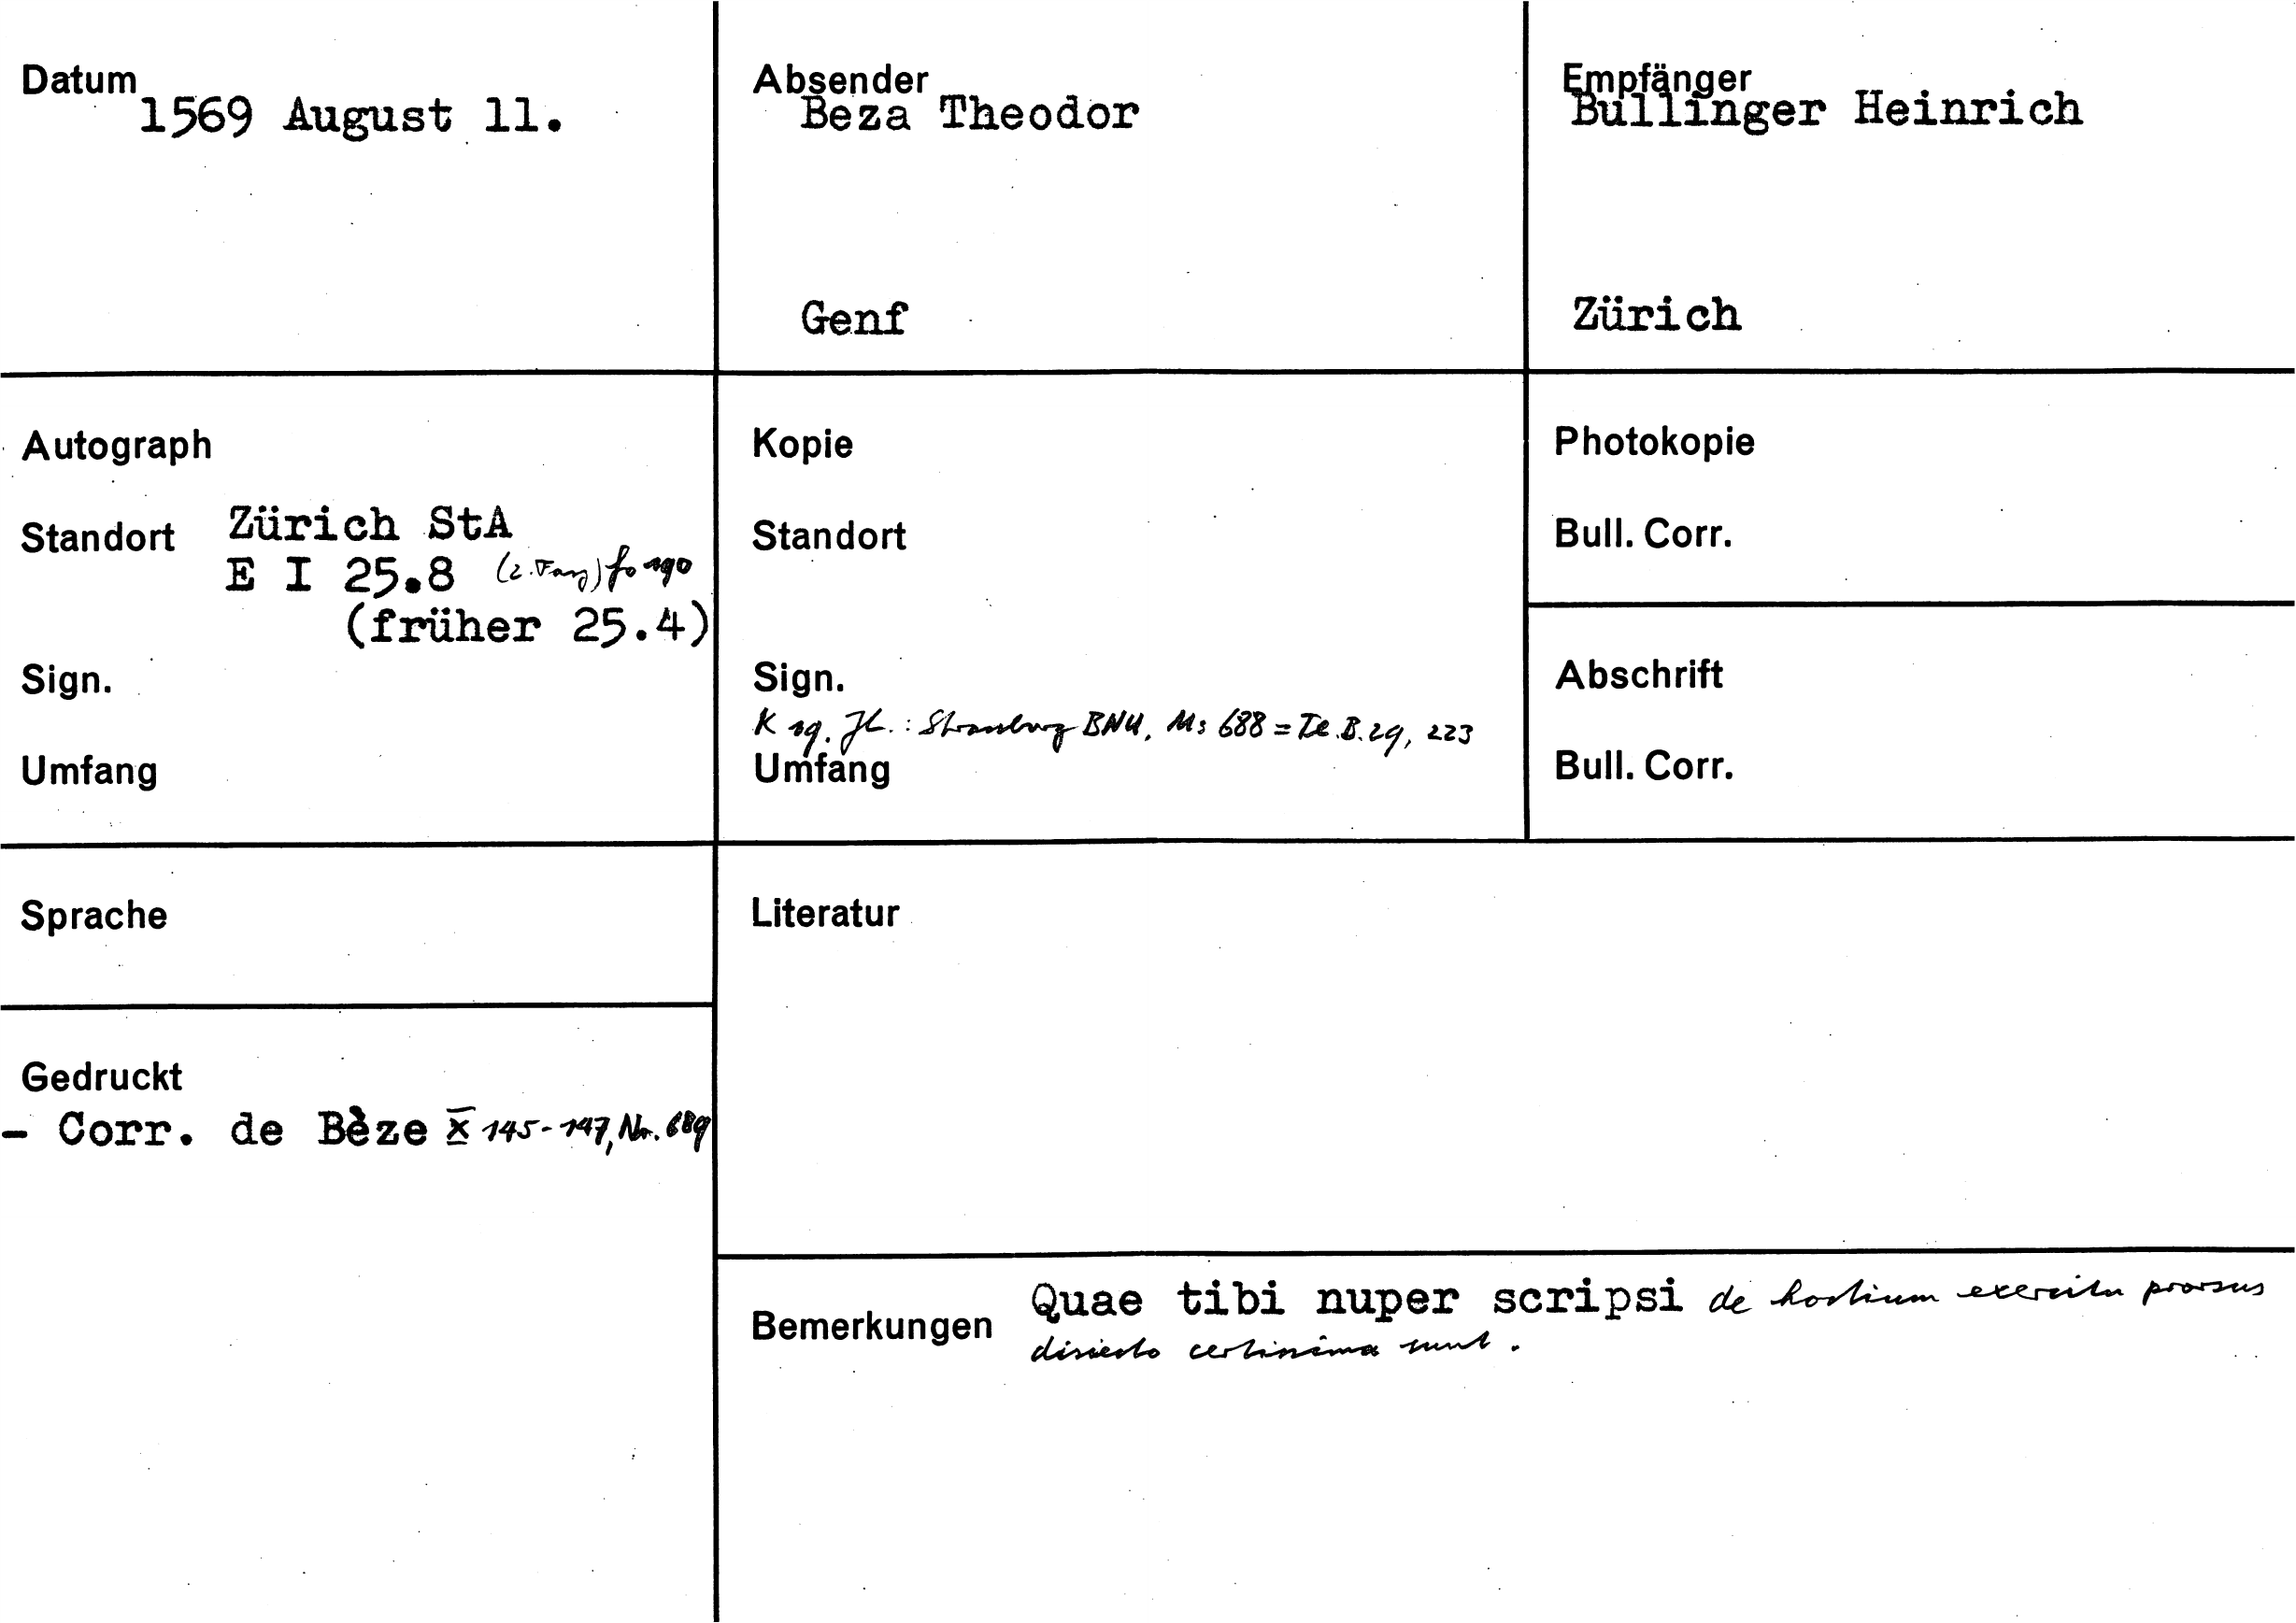 Datum
1569 August 11.
Absender
Beza Theodor
Genf
Empfänger
Bullinger Heinrich
Zürich
Autograph
Standort Zürich StA
E I 25.8 fo 190
(früher 25.4)
Sign.
Umfang
Kopie
Standort
Sign.
K 19. Jh.: Strassburg BNU, Ms 688 = Te.B.29, 223
Umfang
Photokopie
Bull. Corr.
Abschrift
Bull. Corr.
Sprache
Gedruckt
- Corr. de Bèze X 145-147, Nr. 689
Literatur
Bemerkungen Quae tibi nuper scripsi de hostium exercitu prorsus
disiecto certissima sunt.